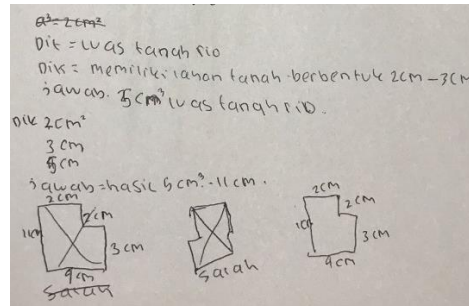 a³ = 2 cm²
Dit = luas tanah rio
Dik = memiliki lahan tanah berbentuk 2cm - 3cm
jawab. 5cm³ luas tanah rio.
Dik 2cm²
3 cm
5cm
jawab = hasil 5 cm³ - 11 cm.
2cm
2cm
11cm
3 cm
9 cm
salah
salah
2cm
2cm
3 cm
9cm